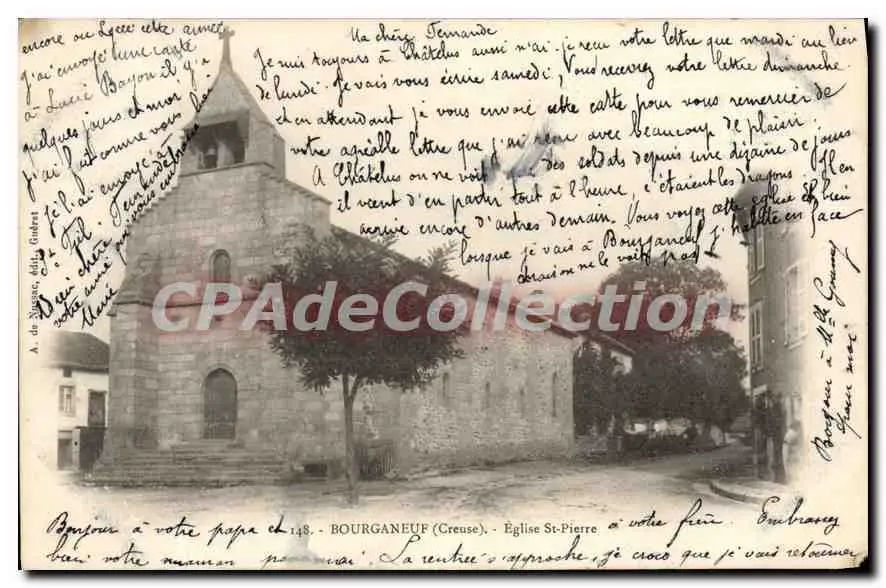 Ma chère Fernande
Je suis toujours à Châtelus aussi n'ai-je reçu votre lettre que mardi au lieu
de lundi. Je vais vous écrire samedi, Vous recevrez votre lettre dimanche.
et en attendant je vous envoie cette carte pour vous remercier de
votre agréable lettre que j'ai reçu avec beaucoup de plaisir
A Châtelus on ne voit que des soldats depuis une dizaine de jours
il vient d'en partir tout à l'heure, c'étaient des dragons. Il en
arrive encore d'autres demain. Vous voyez cette église eh bien
lorsque je vais à Bourganeuf j'habite en face
on ne le voit pas
Bonjour à Mlle
pour moi
Bonjour à votre papa et à votre frère Embrassez
bien votre maman pour moi. La rentrée s'approche, je crois que je vais retourner
encore au Lycée cette année
j'ai envoyé une carte
à Lucie Bayon il y a
quelques jours et mor
j'ai fait comme vous
je l'ai envoyé à
St Fiel. Fernande
Bien chère
votre amie
Marie
148. - BOURGANEUF (Creuse). - Église St-Pierre
A. de Nussac, édit., Guéret
CPA Collection